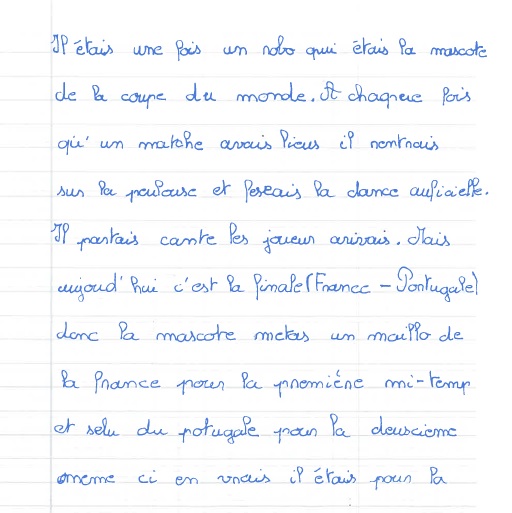 Il étais une fois un robo qui étais la mascote
de la coupe du monde. A chaqueue fois
qu'un matche avais lieus il rentrais
sur la pelouse et feseais la dance auficielle.
Il partais cante les joueur arivais. Mais
aujourd'hui c'est la finale (France - Portugale)
donc la mascote metas un maillo de
la france pour la premiére mi-temp
et selu du potugale pour la deuscieme
meme ci en vrais il étais pour la